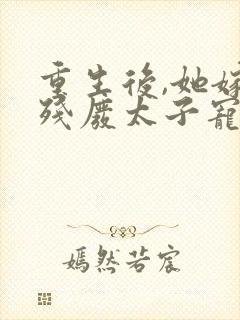 重生後,她嫁
殘廢太子寵
嫣然若宸